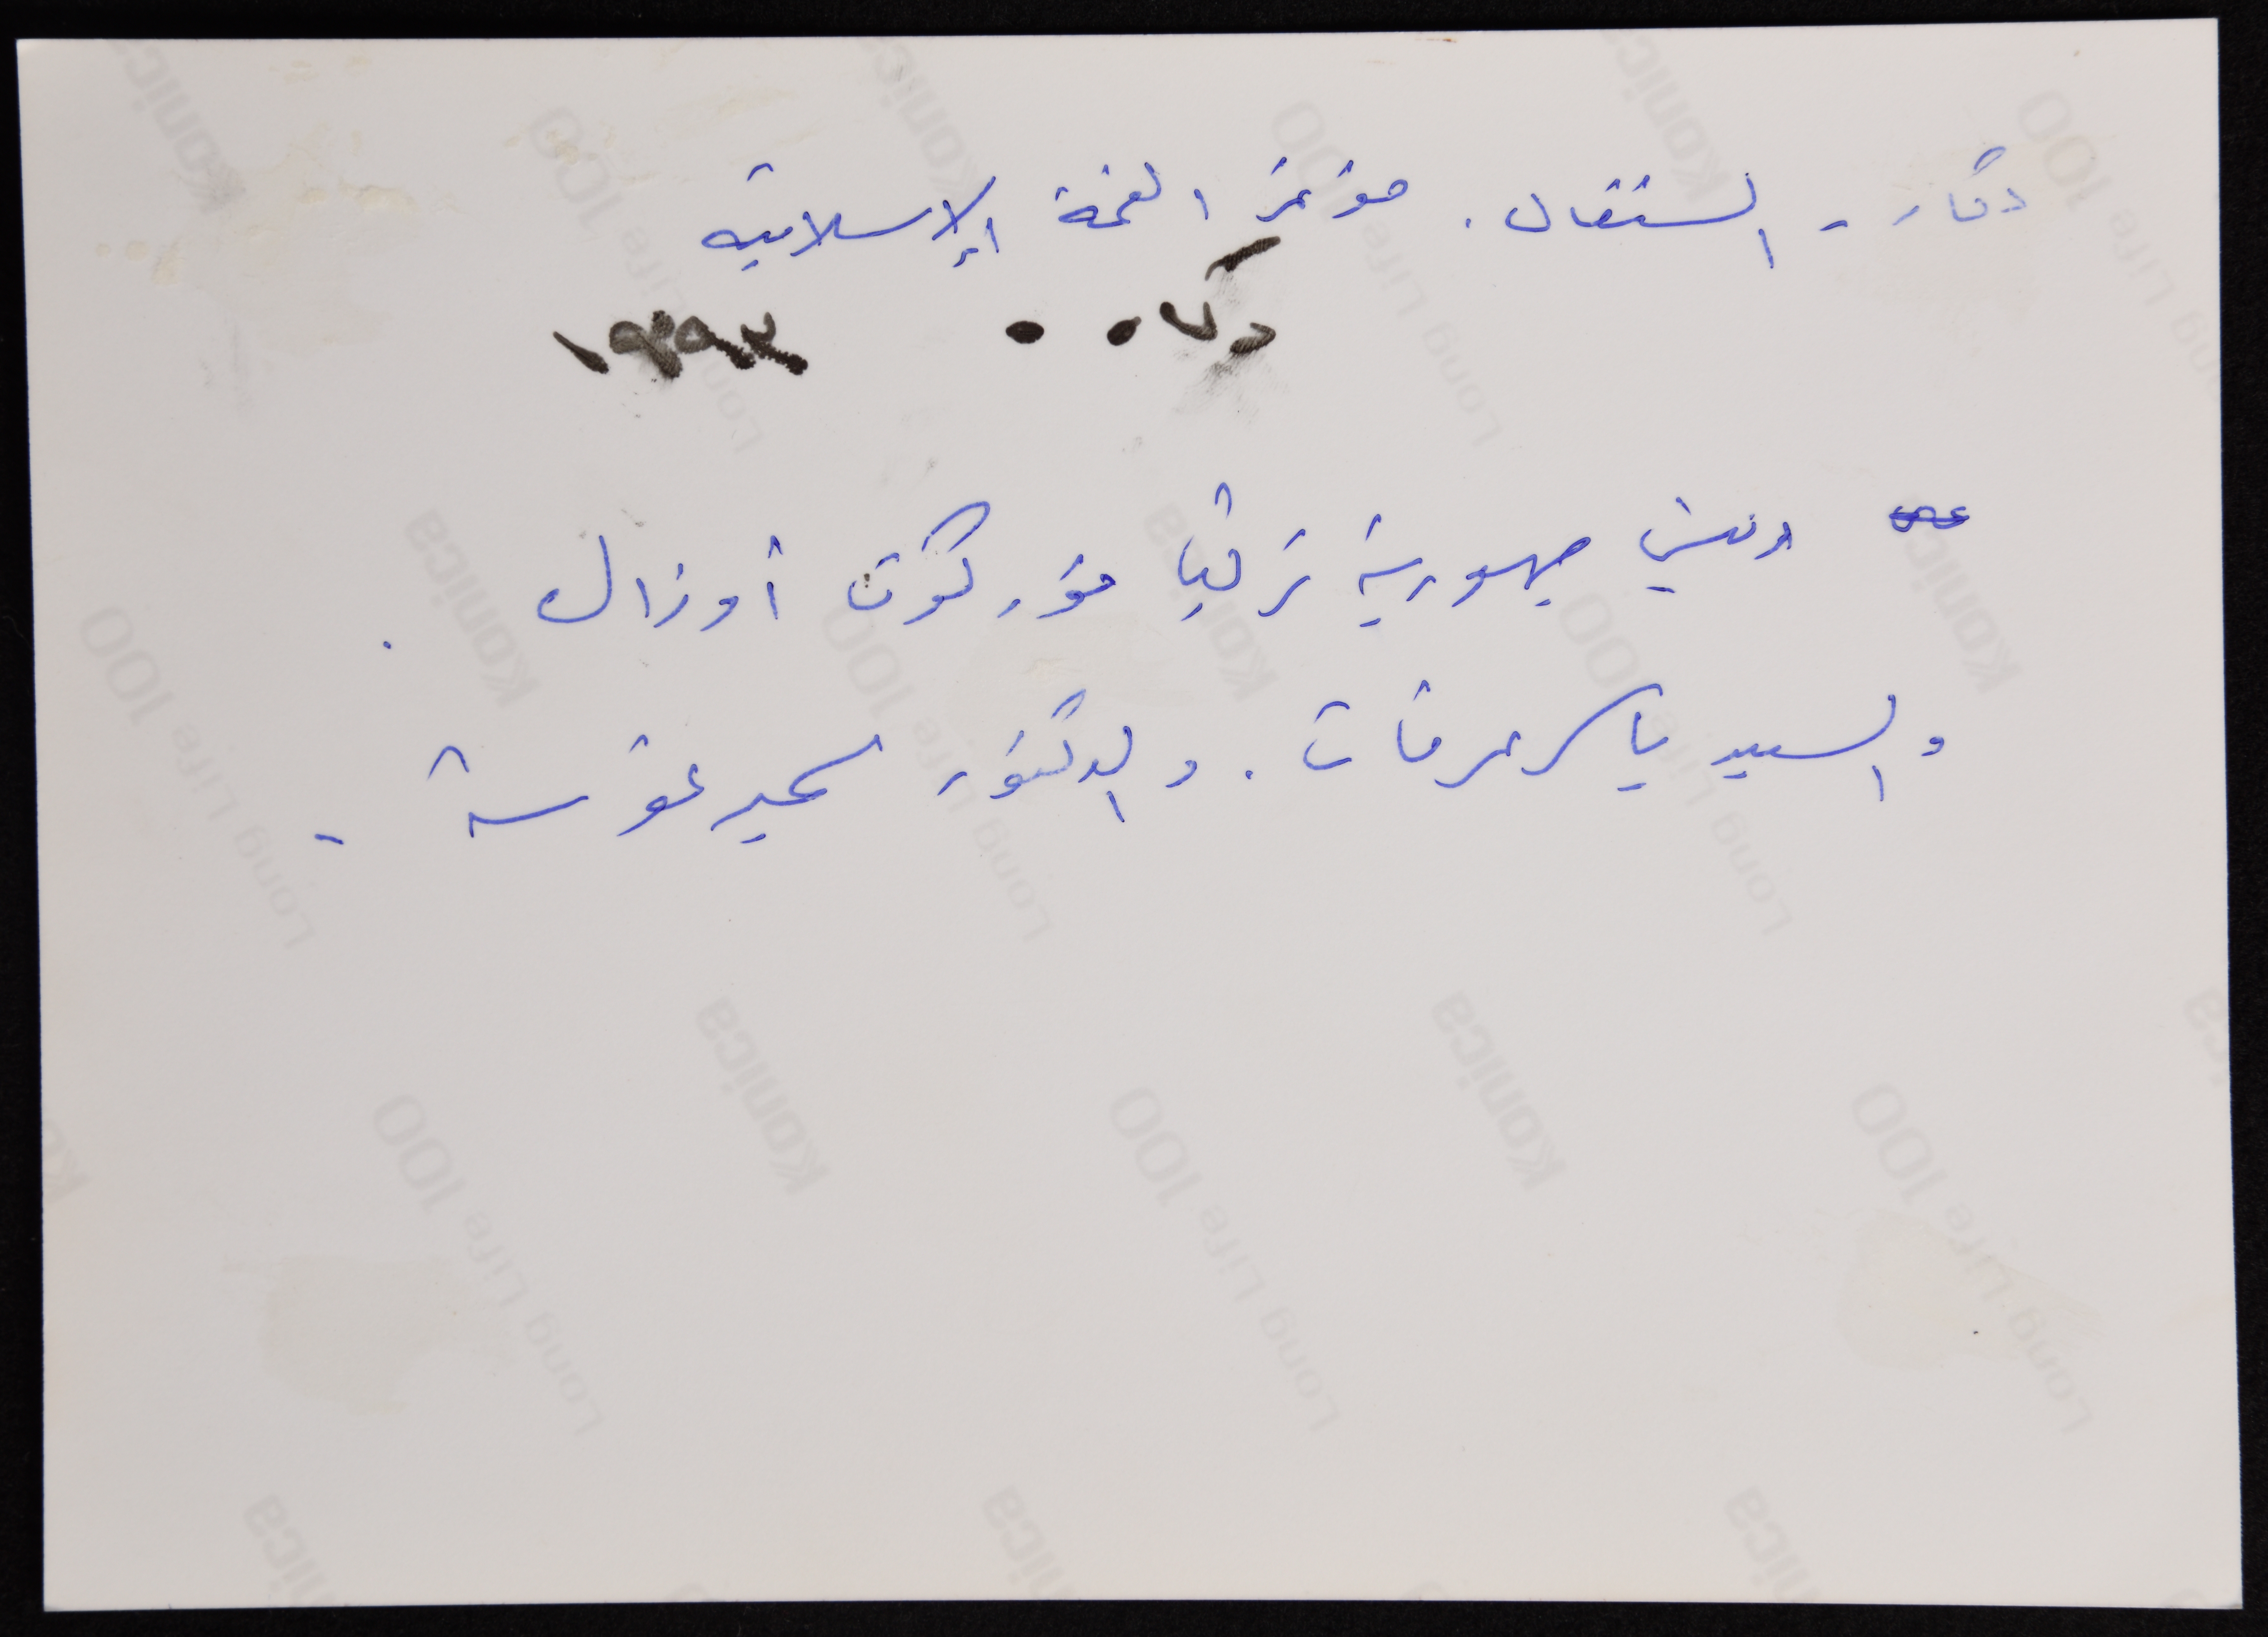 دكار - السنغال. مؤتمر القمة الإسلامية
١٩٩٢
رئيس جمهورية تركيا تورگوت أوزال.
والسيد ياسر عرفات. والدكتور سمير غوشة -
Konica
Long Life 100